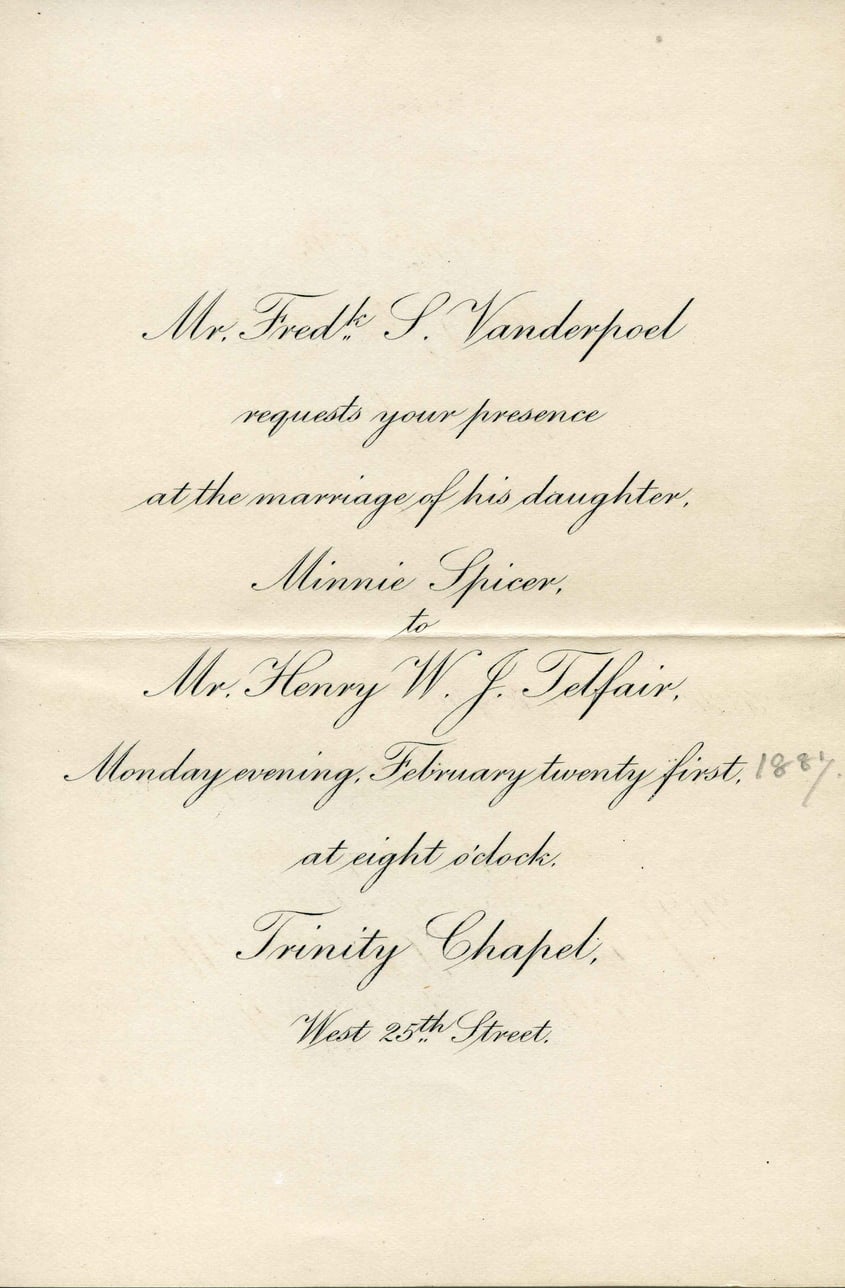 Mr. Fredk. S. Vanderpoel
requests your presence
at the marriage of his daughter,
Minnie Spicer,
to
Mr. Henry W. J. Telfair,
Monday evening, February twenty first, 1887.
at eight o'clock.
Trinity Chapel,
West 25th Street.